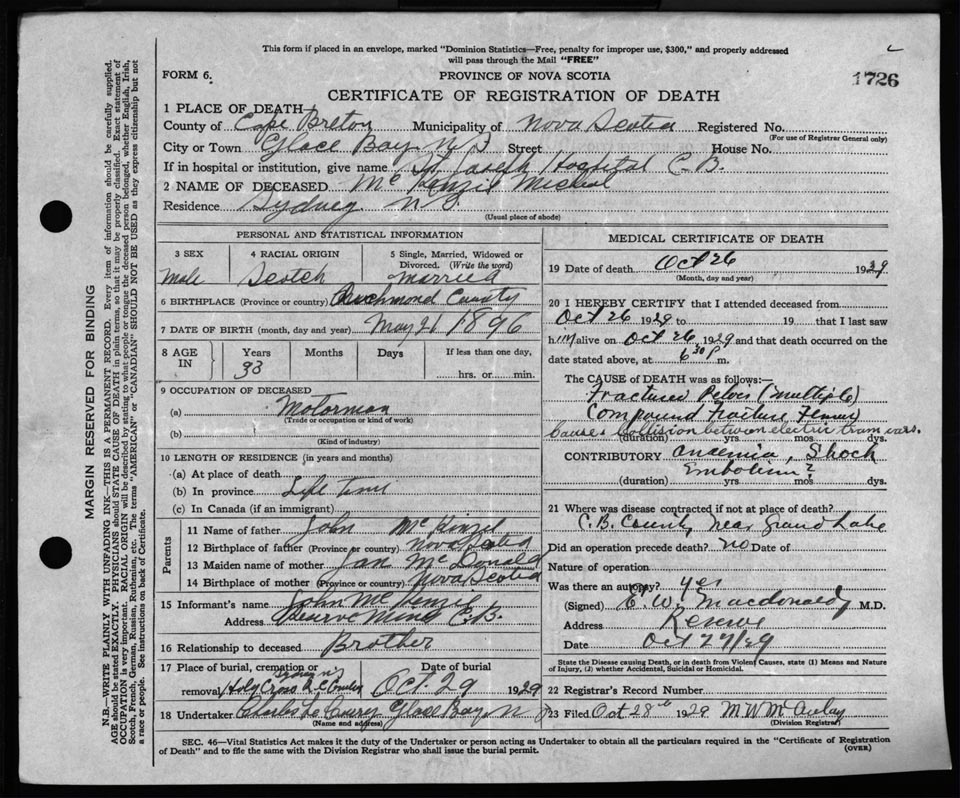 This form if placed in an envelope, marked "Dominion Statistics—Free, penalty for improper use, $300," and properly addressed
will pass through the Mail "FREE"
FORM 6.
PROVINCE OF NOVA SCOTIA
1726
CERTIFICATE OF REGISTRATION OF DEATH
1 PLACE OF DEATH—
County of Cape Breton Municipality of Nova Scotia Registered No.
(For use of Registrar General only)
City or Town Glace Bay N S Street House No.
If in hospital or institution, give name St Joseph Hospital C.B.
2 NAME OF DECEASED McKenzie Micheal
Residence Sydney N S.
(Usual place of abode)
PERSONAL AND STATISTICAL INFORMATION
3 SEX
Male
4 RACIAL ORIGIN
Scotch
5 Single, Married, Widowed or
Divorced. (Write the word)
Married
6 BIRTHPLACE (Province or country) Richmond County
7 DATE OF BIRTH (month, day and year) May 21 1896
8 AGE IN
Years Months Days If less than one day,
33
hrs. or min.
9 OCCUPATION OF DECEASED
(a) Motorman
(Trade or occupation or kind of work)
(b)
(Kind of industry)
10 LENGTH OF RESIDENCE (in years and months)
(a) At place of death
(b) In province Life Time
(c) In Canada (if an immigrant)
Parents
11 Name of father John McKinzil
12 Birthplace of father (Province or country) Nova Scotia
13 Maiden name of mother Jan McDonald
14 Birthplace of mother (Province or country) Nova Scotia
15 Informant's name John McKenzie
Address Reserve Mines C.B.
16 Relationship to deceased Brother
17 Place of burial, cremation or
removal Holy Cross R C
Date of burial
Oct. 29 1929
18 Undertaker Charles Glace Bay N S
(Name and address)
MEDICAL CERTIFICATE OF DEATH
19 Date of death Oct 26 1929
(Month, day and year)
20 I HEREBY CERTIFY that I attended deceased from
Oct 26 1929 to 19 that I last saw
him alive on Oct 26, 1929 and that death occurred on the
date stated above, at 6 30 P. m.
The CAUSE OF DEATH was as follows:—
Fractured Pelvis (multiple)
Compound Fracture Femur
Cause: Collision between electric tram cars.
(duration) yrs. mos. dys.
CONTRIBUTORY Anaemia, Shock
Embolism?
(duration) yrs. mos. dys.
21 Where was disease contracted if not at place of death?
C.B. County near Grand Lake
Did an operation precede death? no Date of
Nature of operation
Was there an autopsy? Yes
(Signed) E. W. Macdonald M.D.
Address Reserve
Date Oct 27/29
State the Disease causing Death, or in death from Violent Causes, state (1) Means and Nature
of Injury, (2) whether Accidental, Suicidal or Homicidal.
22 Registrar's Record Number
23 Filed Oct 28 1929 M W McAulay
(Division Registrar)
SEC. 46—Vital Statistics Act makes it the duty of the Undertaker or person acting as Undertaker to obtain all the particulars required in the "Certificate of Registration
of Death" and to file the same with the Division Registrar who shall issue the burial permit.
(OVER)
MARGIN RESERVED FOR BINDING
N.B.—WRITE PLAINLY WITH UNFADING INK—THIS IS A PERMANENT RECORD. Every item of information should be carefully supplied.
AGE should be stated EXACTLY. PHYSICIANS should STATE CAUSE OF DEATH in plain terms, so that it may be properly classified. Exact statement of
OCCUPATION is very important. RACIAL ORIGIN will be described by stating to what people or tongue the deceased person belonged, whether English, Irish,
Scotch, French, German, Russian, Ruthenian, etc. The terms "AMERICAN" or "CANADIAN" SHOULD NOT BE USED as they express citizenship but not
a race or people. See instructions on back of Certificate.